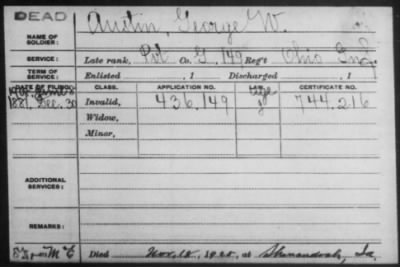 DEAD
NAME OF SOLDIER: Austin, George W.
SERVICE: Late rank, Pvt Co. G, 149 Reg't Ohio Inf.
TERM OF SERVICE: Enlisted , 1 Discharged , 1
DATE OF FILING: CLASS. APPLICATION NO. LAW. CERTIFICATE NO.
1881, Dec. 30 Invalid, 436,149 744,216
Widow,
Minor,
ADDITIONAL SERVICES:
REMARKS:
Died Nov. 18, 1920, at Shenandoah, Ia.